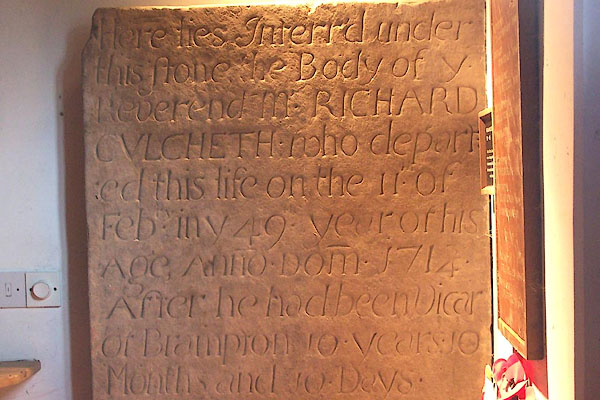 Here lies Interr'd under
this stone the Body of y
Reverend Mr RICHARD
CVLCHETH who depart
ed this life on the 11 of
Feb: in y 49 year of his
Age, Anno Dom 1714
After he had been Vicar
of Brampton 10 years 10
Months and 10 Days